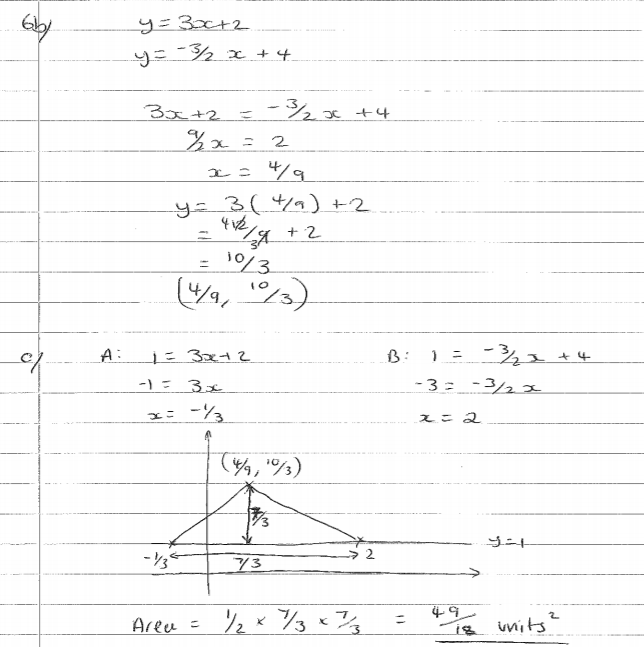 6b/ y = 3x+2
y = -3/2 x + 4
3x+2 = -3/2 x + 4
9/2 x = 2
x = 4/9
y = 3(4/9) + 2
= 4 12/9 3 + 2
= 10/3
(4/9, 10/3)
c/ A: 1 = 3x+2 B: 1 = -3/2 x + 4
-1 = 3x -3 = -3/2 x
x = -1/3 x = 2
(4/9, 10/3)
7/3
y=1
-1/3 7/3 2
Area = 1/2 × 7/3 × 7/3 = 49/18 units²